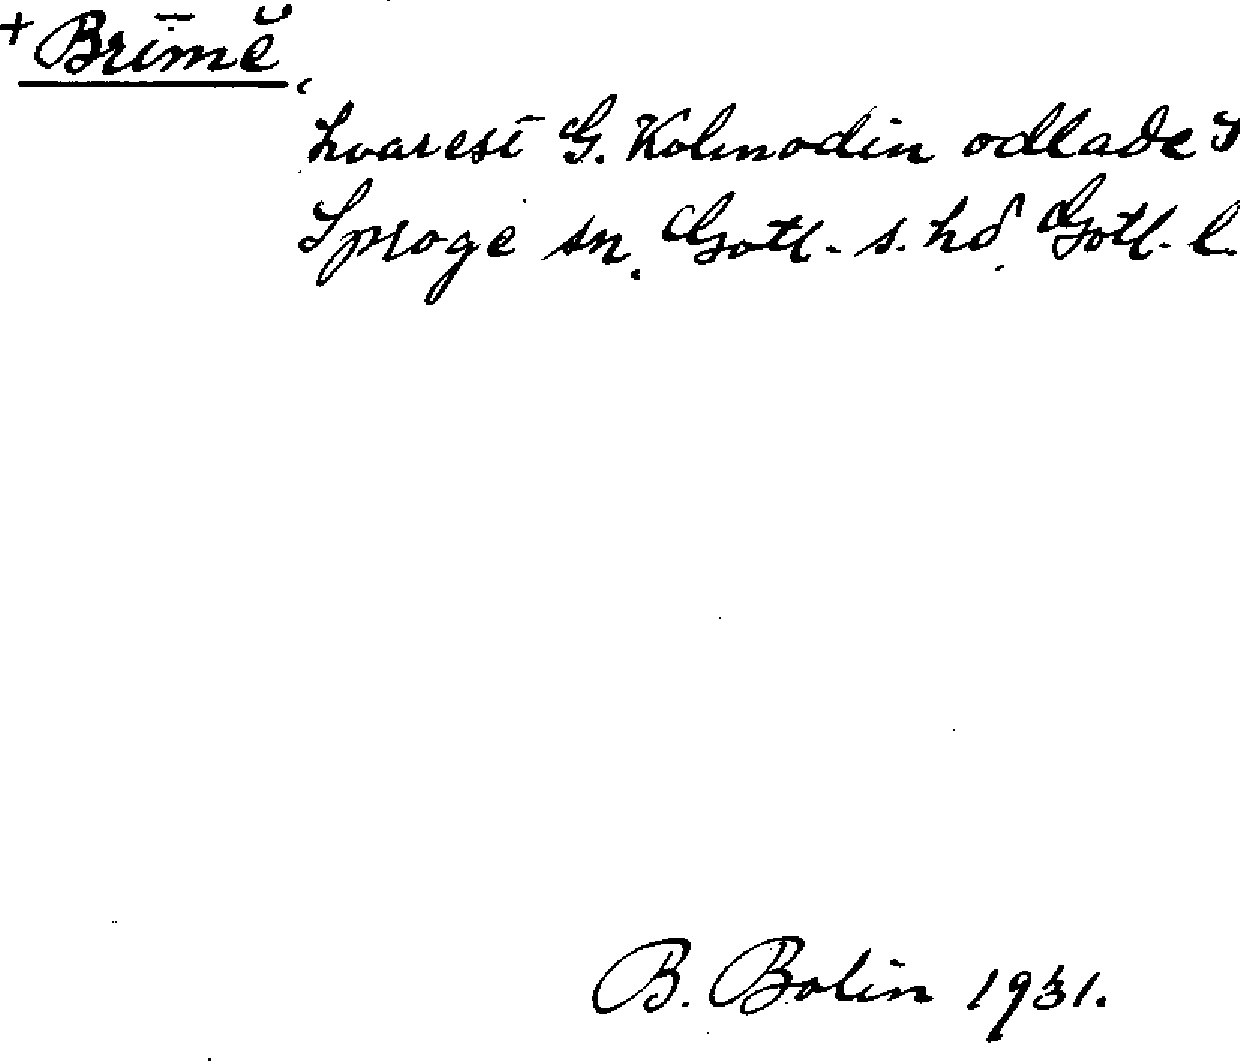 + Brīmĕ,
hvarest G. Kolmodin odlade i
Sproge sn. Gotl. s. hd. Gotl. l.
B. Bolin 1931.